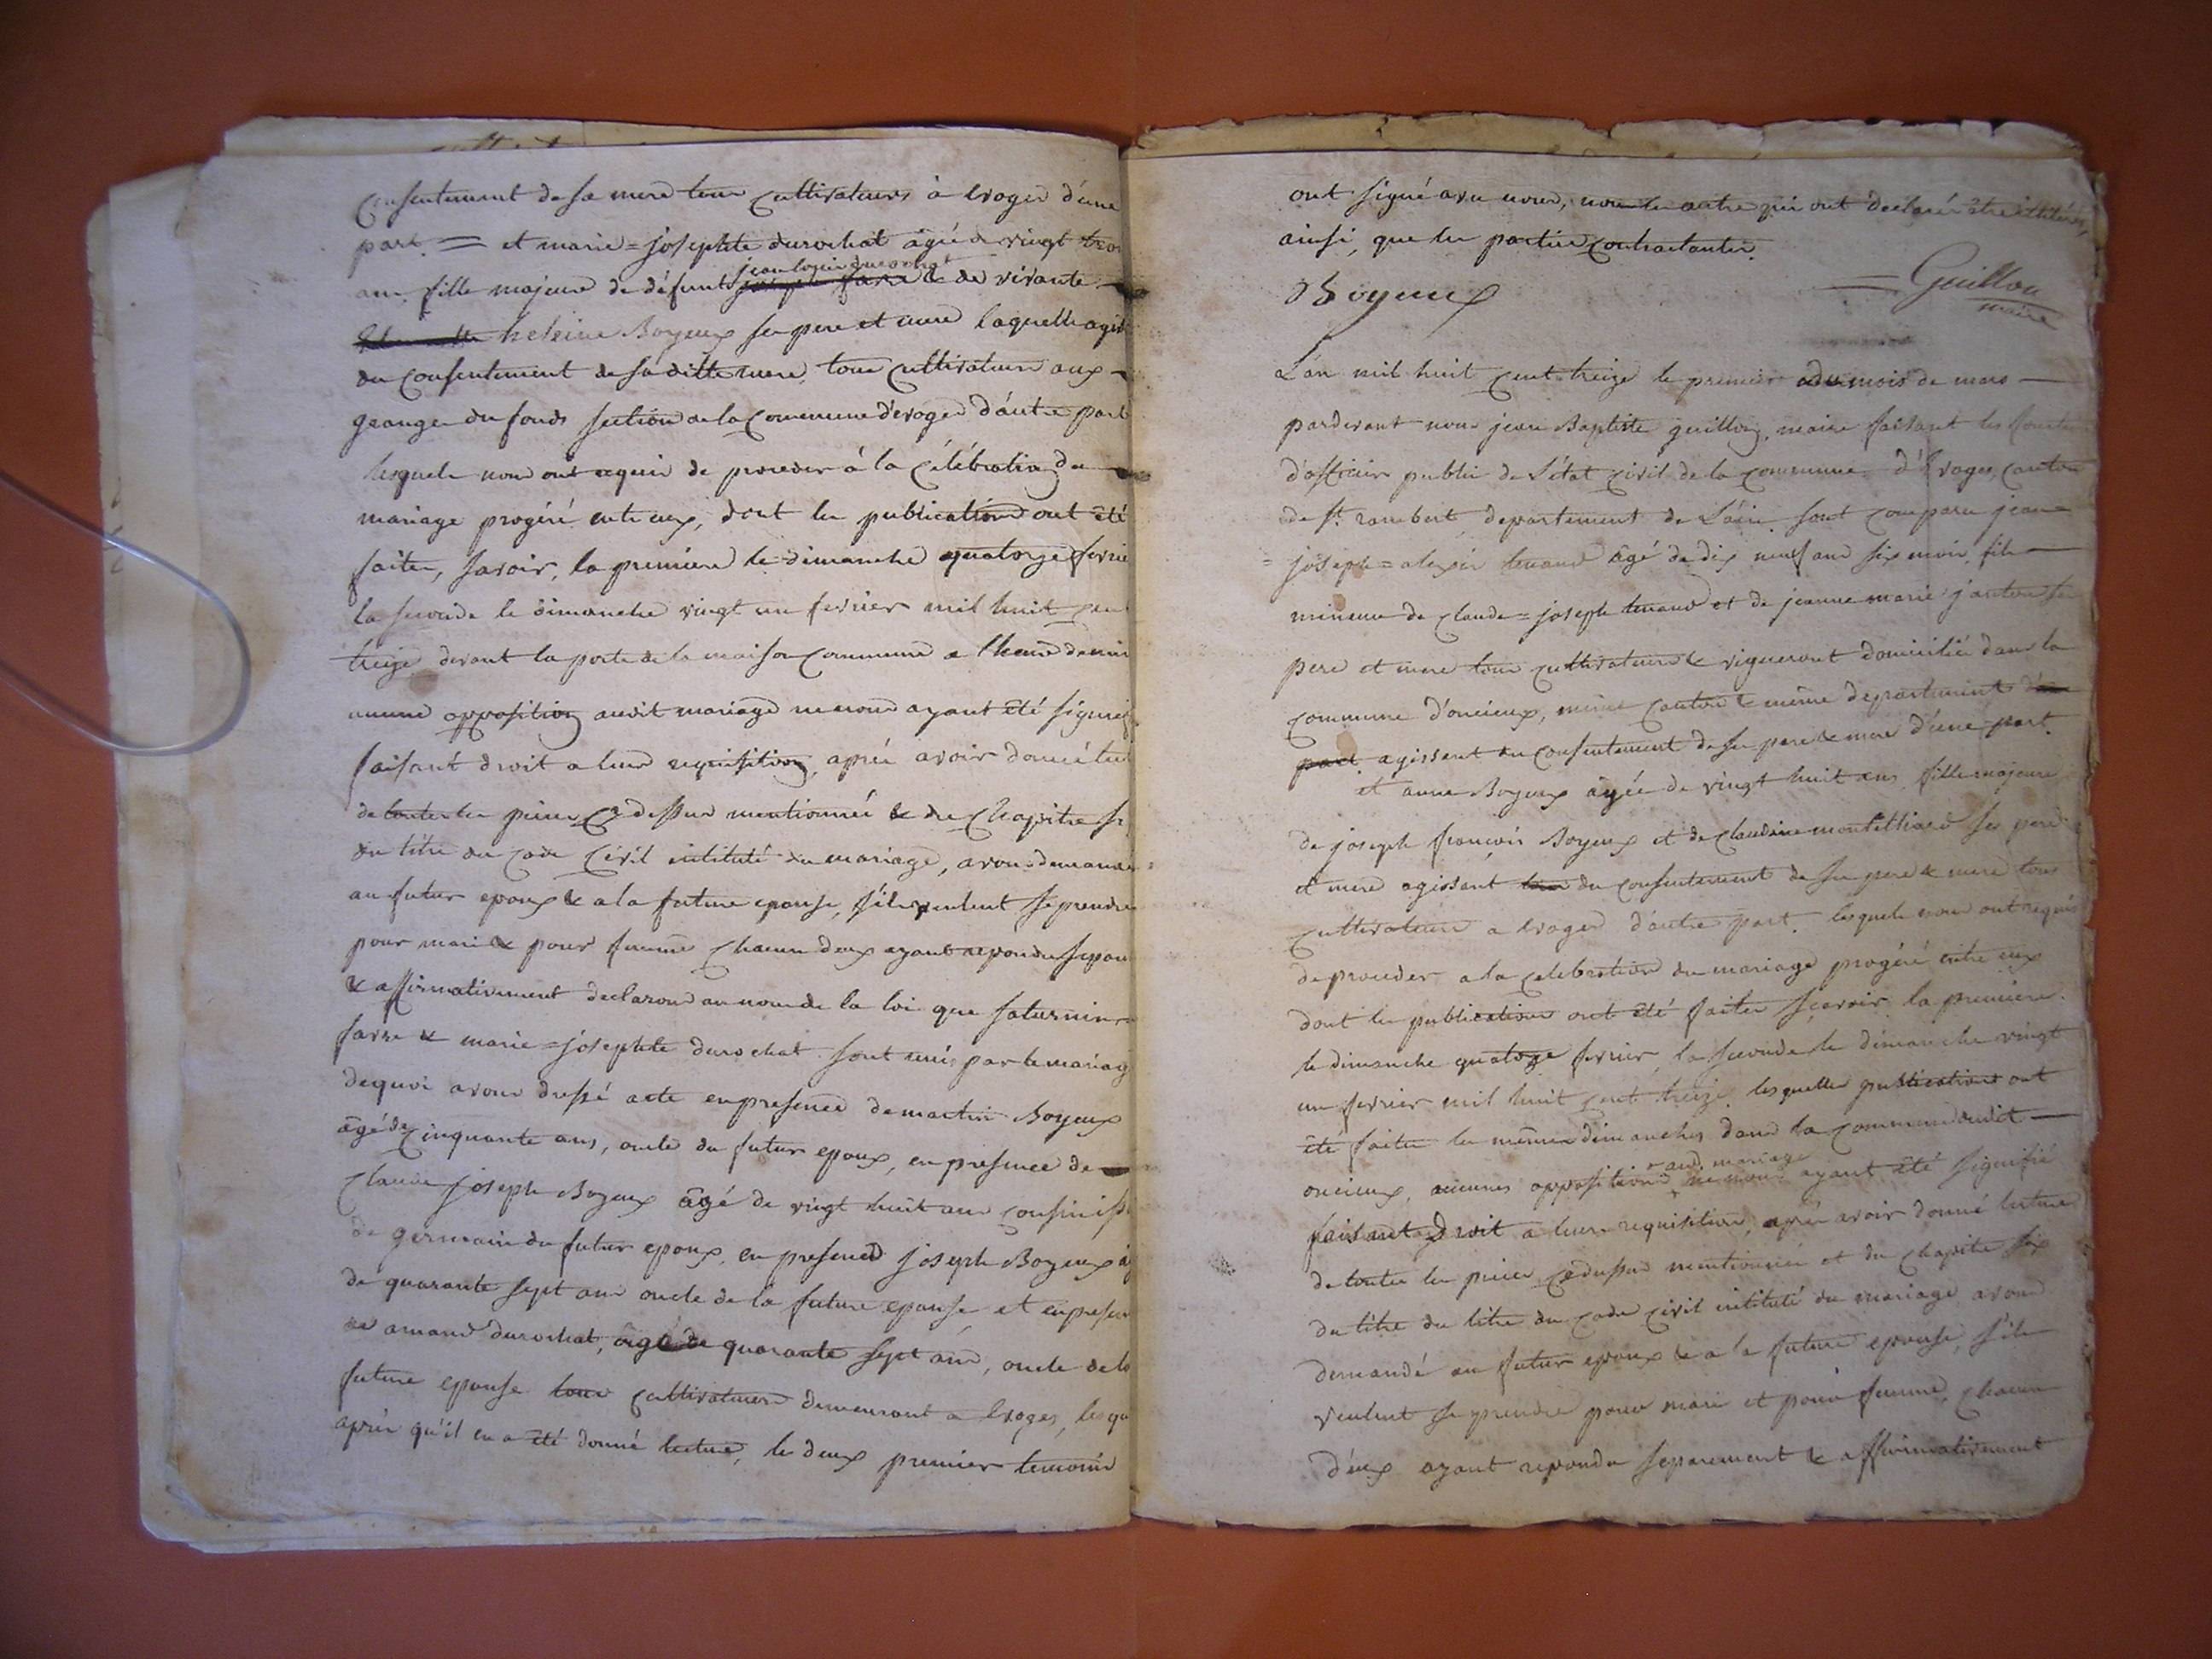 Consentement de sa mere tous cultivateurs à Evoges d'une
part = et marie=josephte durochat âgée de vingt trois
ans, fille majeure de défunt jean louis durochat & de vivante
heleine Boyeux ses pere et mere laquelle agit
du consentement de saditte mere, tous cultivateurs aux
granges du fonds section de la commune d'evoges d'autre part
lesquels nous ont requis de proceder à la célébration du
mariage progéré entr eux, dont les publications ont été
faites, savoir, la premiere le dimanche quatorze fevrier
la seconde le dimanche vingt un fevrier mil huit cent
treize devant la porte de la maison commune a l'heure de midi
aucune opposition audit mariage ne nous ayant été signifié
faisant droit a leur requisition, après avoir donné lecture
de toutes les pieces cy dessus mentionnés & du chapitre six
du titre du code civil intitulé du mariage, avons demandé
au futur epoux & a la future epouse, s'ils veulent se prendre
pour mari & pour femme chacun deux ayant repondu separ
& affirmativement declarons au nom de la loi que saturnin
farre & marie=josephte durochat sont unis par le mariage
dequoi avons dressé acte en presence de martin Boyeux
âgé de cinquante ans, oncle du futur epoux, en presence de
Claude joseph Boyeux âgé de vingt huit ans cousin iss
de germain du futur epoux, en presence joseph Boyeux âgé
de quarante sept ans oncle de la future epouse, et en presence
de amand durochat, âgé de quarante sept ans, oncle de la
future epouse tous cultivateurs demeurant a Evoges, lesquels
après qu'il en a été donné lecture, les deux premiers temoins
ont signé avec nous, non les autres qui ont declarés être illitérés,
ainsi, que les parties contractantes.
Boyeux = Guillon
maire
L'an mil huit cent treize le premier du mois de mars
pardevant nous jean Baptiste guillon, maire faisant les fonctions
d'officier public de l'état civil de la commune d'Evoges, canton
de st. rambert, departement de L'ain sont comparu jean=
=joseph=alexis tenand âgé de dix neuf ans six mois, fils
mineur de Claude=joseph tenand et de jeanne marie janton ses
pere et mere tous cultivateurs & vignerons domiciliés dans la
commune d'oncieux, même canton & même departement
part agissant du consentement de ses pere & mere d'une part.
et anne Boyeux âgée de vingt huit ans, fille majeure
de joseph françois Boyeux et de Claudine montilliard ses pere
et mere agissant du consentement de ses pere & mere tous
cultivateurs a Evoges d'autre part. lesquels nous ont requis
de proceder a la celebration du mariage progéré entre eux
dont les publications ont été faites sçavoir la premiere
le dimanche quatorze fevrier, la seconde le dimanche vingt
un fevrier mil huit cent treize. lesquelles publications ont
été faites les mêmes dimanches dans la commune dudit
oncieux, aucunes oppositions aud. mariage ne nous ayant été signifié
faisant Droit a leur requisition, après avoir donné lecture
de toutes les pieces cydessus mentionnées et du chapitre six
du titre du titre du code civil intitulé du mariage avons
demandé au futur epoux & a la future epouse, s'ils
veulent se prendre pour mari et pour femme, chacun
d'eux ayant repondu separement & affirmativement